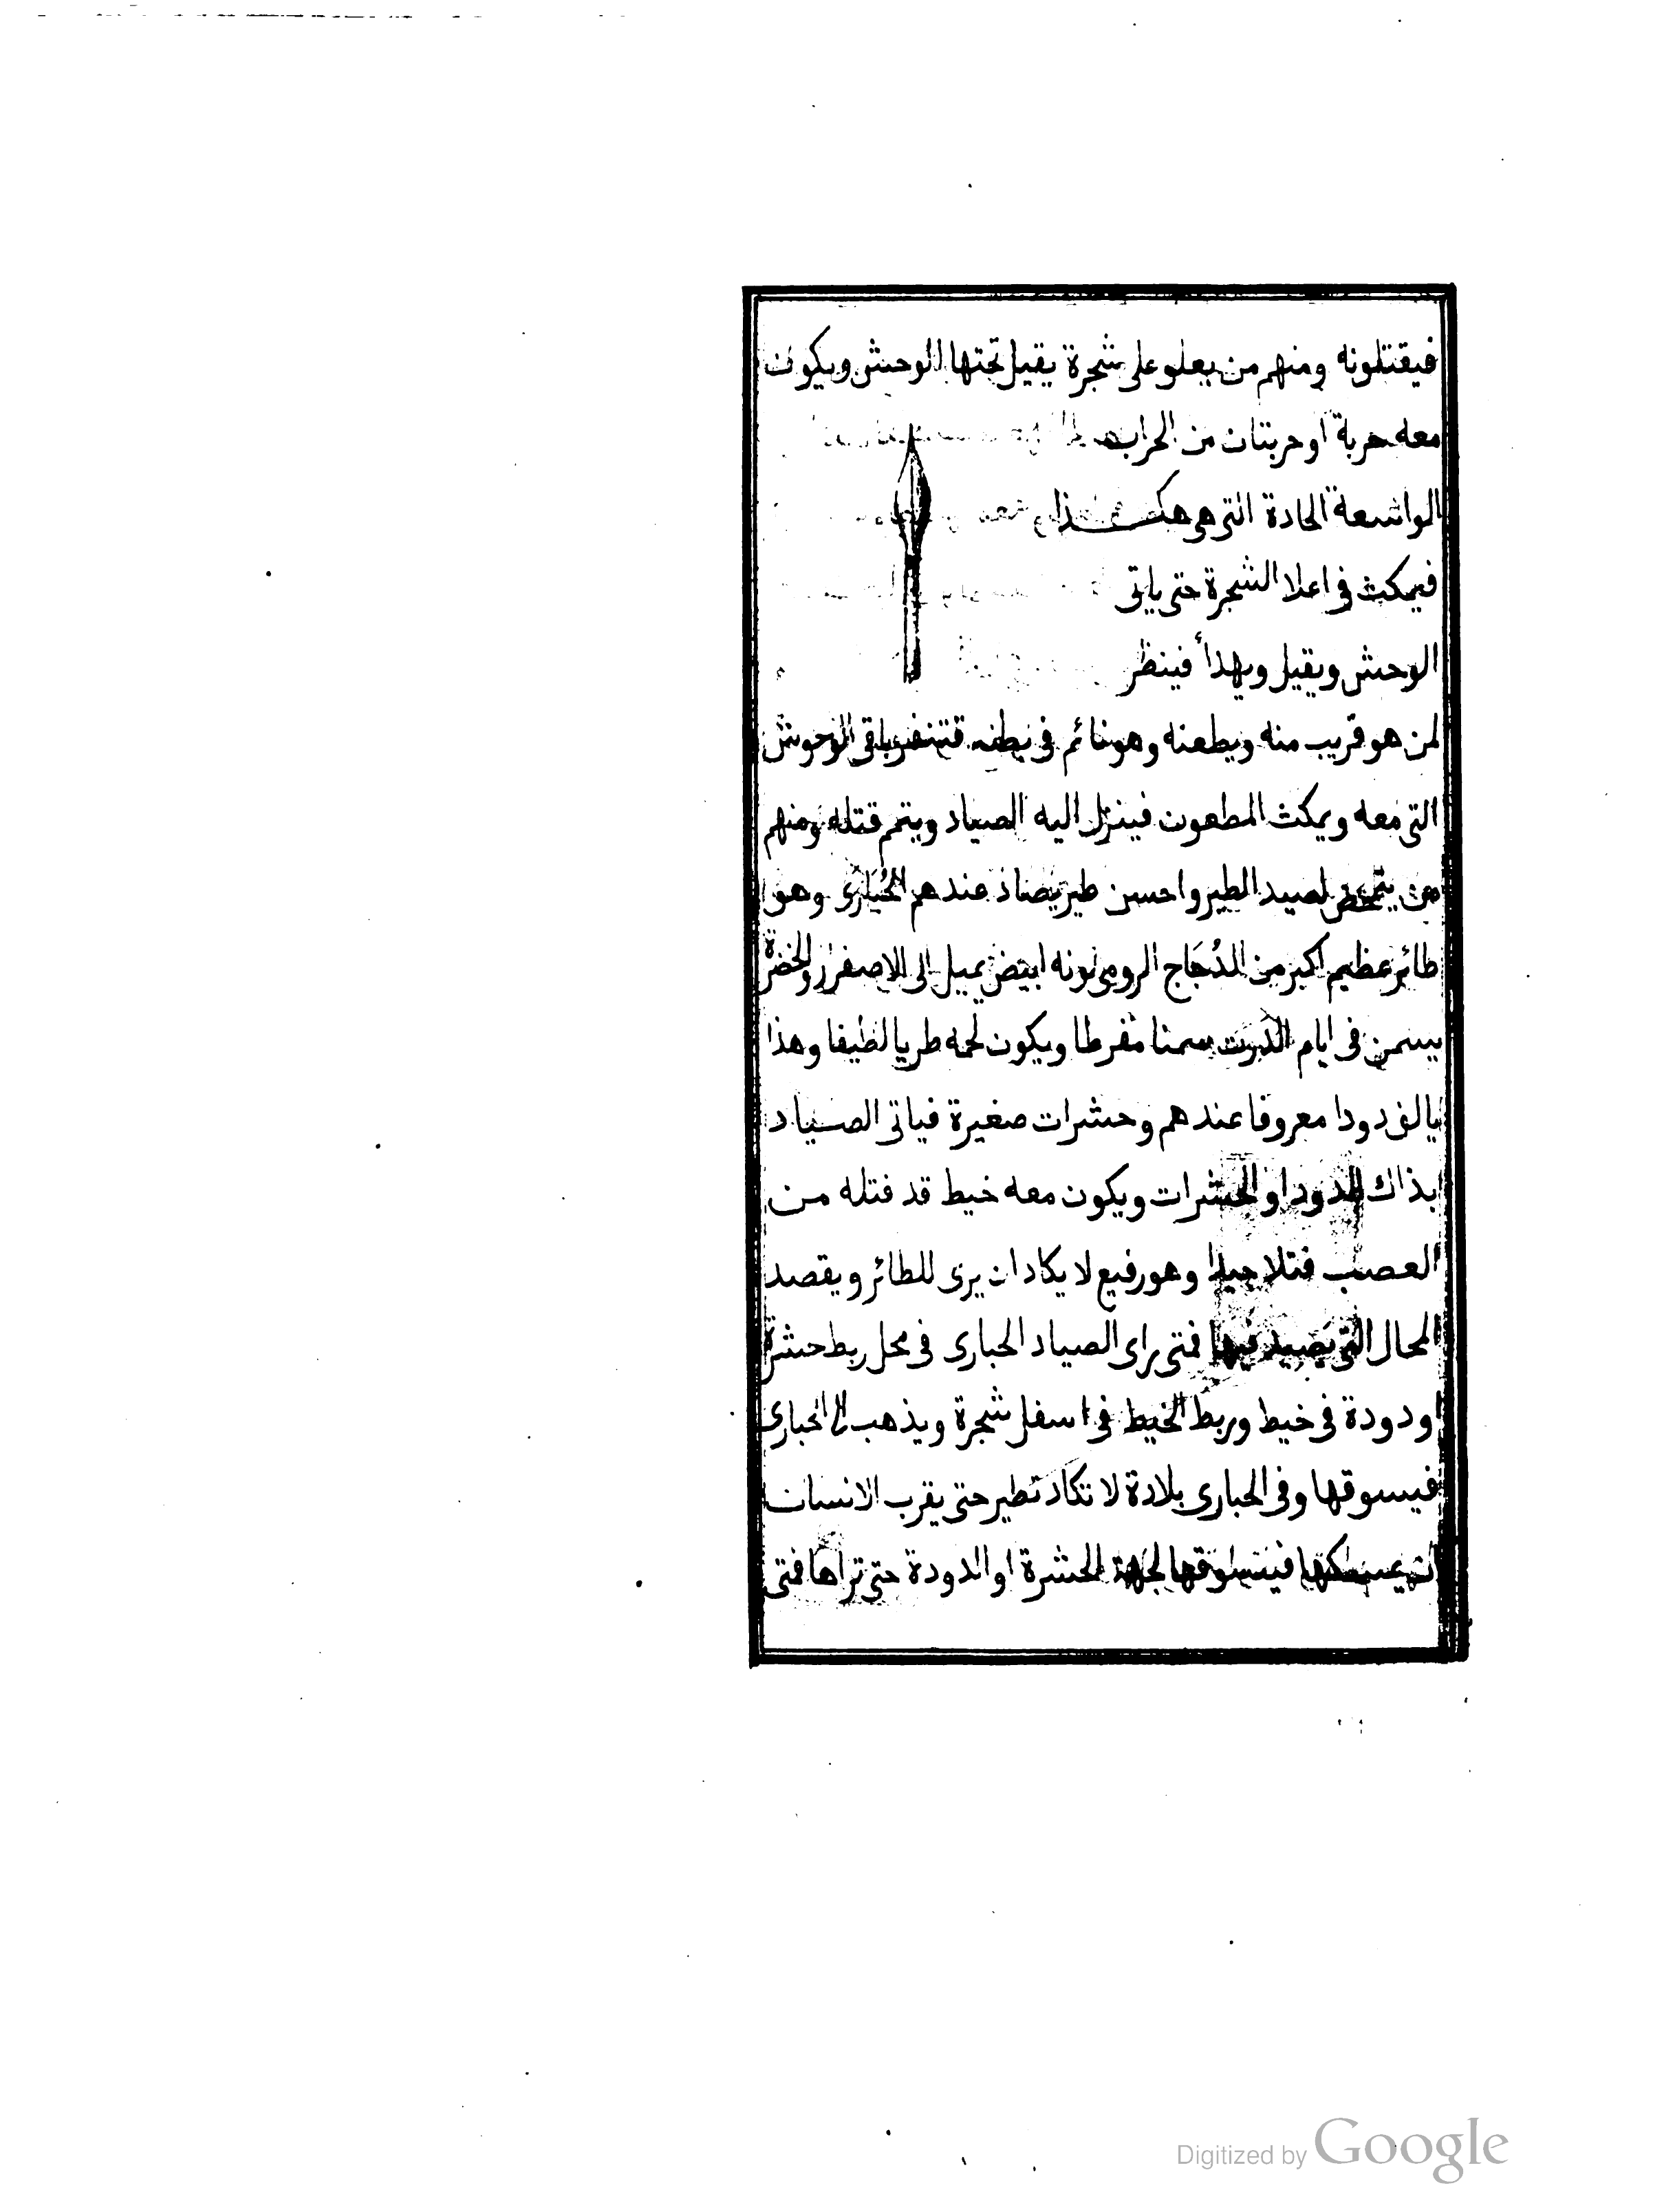 فيقتلونه ومنهم من يعلو على شجرة يقيل تحتها الوحش ويكون
معه حربة او حربتان من الحراب
الواسعة الحادة التى هى هكذا
فيمكث فى اعلا الشجرة حتى ياتى
الوحش ويقيل ويهدأ فينظر
لمن هو قريب منه ويطعنه وهو نائم فى بطنه فتنفر باقى الوحوش
التى معه ويمكث المطعون فينزل اليه الصياد ويتمم قتله ومنهم
من يتمحض لصيد الطير واحسن طير يصاد عندهم الحُبَارَى وهو
طائر عظيم اكبر من الدُجَاج الرومى لونه ابيض يميل الى الاصفرار والخضرة
يسمن فى ايام الدَرَت سمنا مفرطا ويكون لحمه طريا لطيفا وهذا
يالف دودا معروفا عندهم وحشرات صغيرة فياتى الصياد
بذاك الدود او الحشرات ويكون معه خيط قد فتله من
العصب فتلا جيدا وهو رفيع لا يكاد ان يرى للطائر ويقصد
المحال التى يصيد فيها فمتى راى الصياد الحبارى فى محل ربط حشرة
او دودة فى خيط وربط الخيط فى اسفل شجرة ويذهب الى الحبارى
فيسوقها وفى الحبارى بلادة لا تكاد تطير حتى يقرب الانسان
ان يمسكها فيسوقها لجهة الحشرة او الدودة حتى تراها فمتى
Digitized by Google